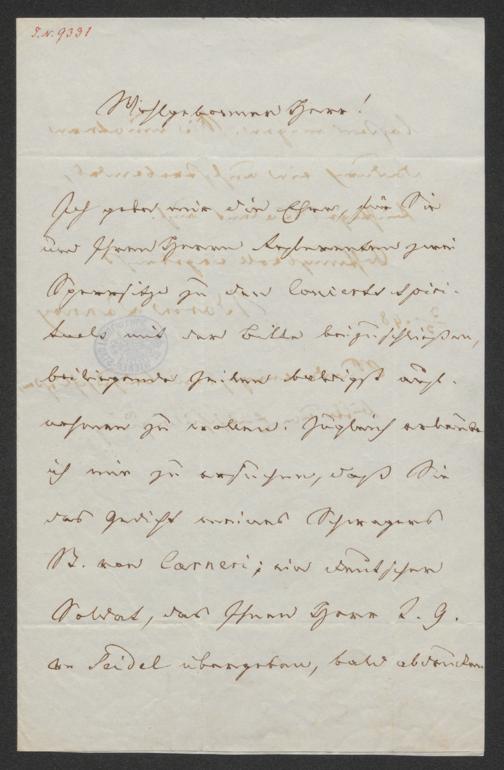 I.N. 9391
Wohlgeborner Herr!
Ich gebe mir die Ehre, für Sie
und Ihren Herrn Referenten zwei
Sperrsitze zu den Concerts spiri-
tuels mit der Bitte beizuschließen,
beiliegende Zeilen
zu wollen. Zugleich erlaube
ich mir zu ersuchen, daß Sie
das Gedicht meines Schwagers
B. von Carneri; ein deutscher
Soldat, das Ihnen Herr I. G.
Seidel übergeben, bald abdrucken